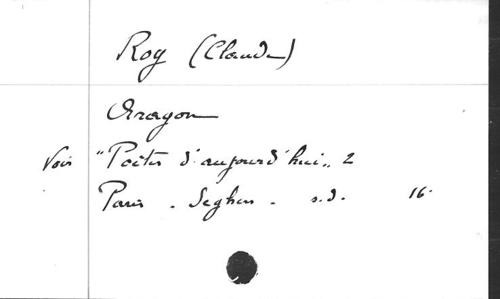 Roy (Claude)
Aragon
Voir "Poètes d'aujourd'hui" 2
Paris - Seghers - s.d. 16°